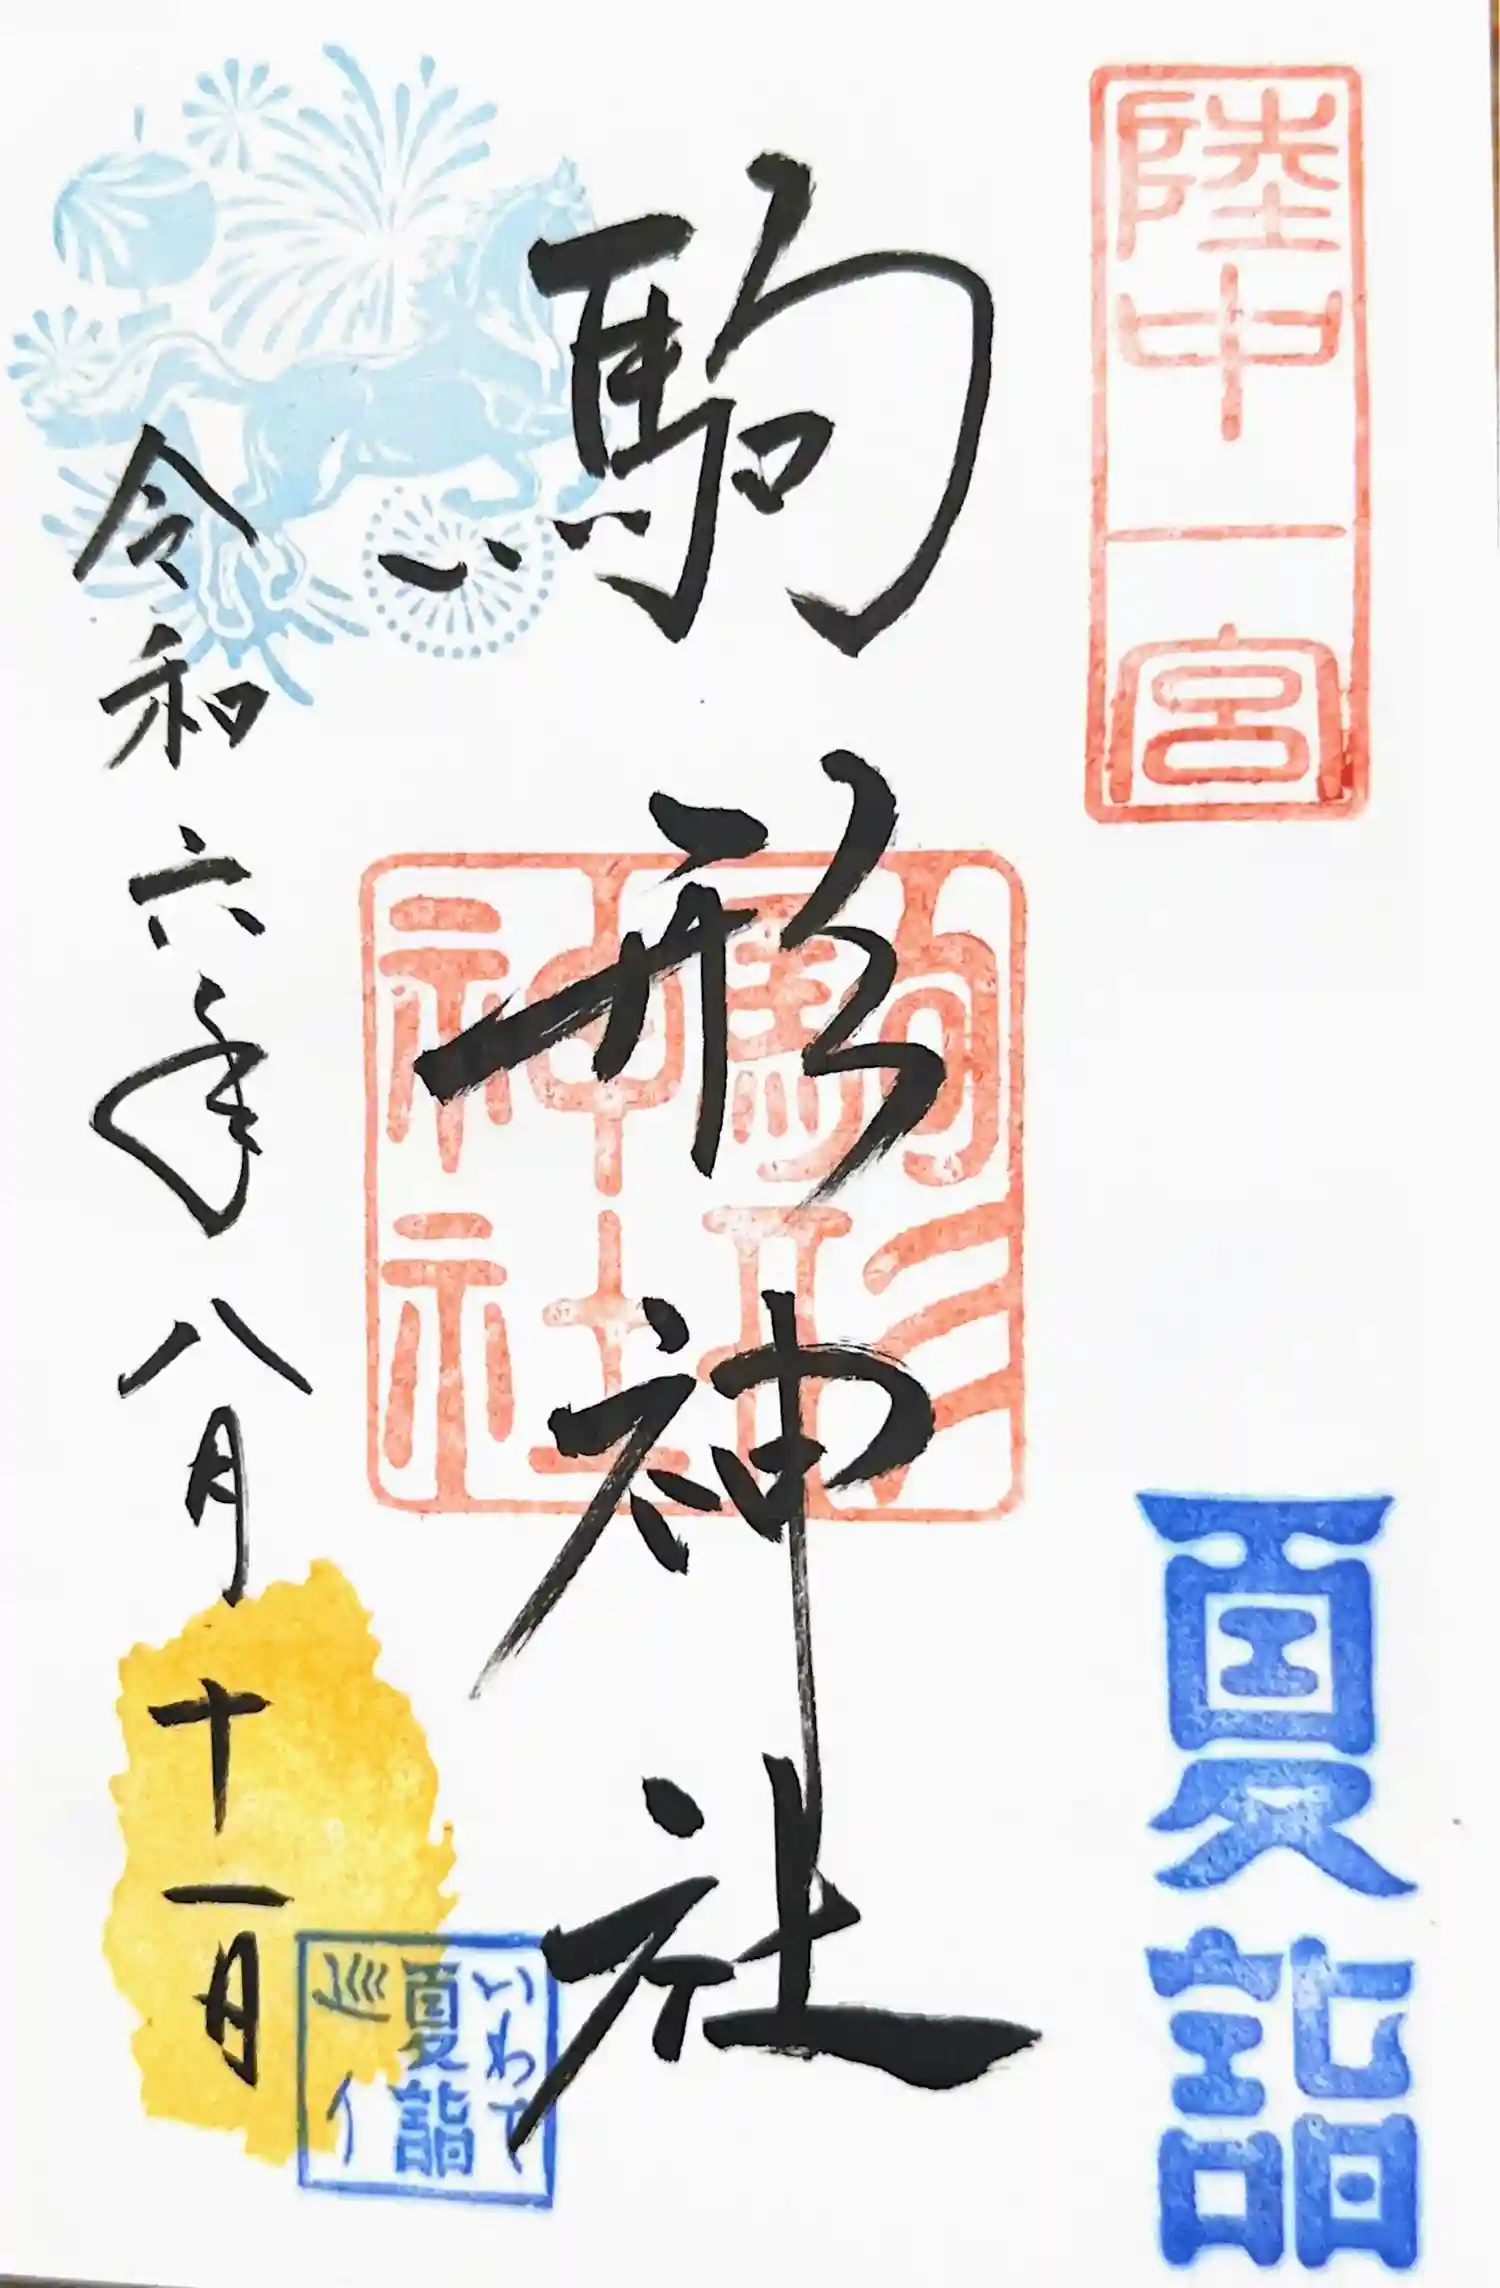 陸中一宮
夏詣
駒形神社
駒形
神社
いわて
夏詣
巡り
令和六年八月十一日